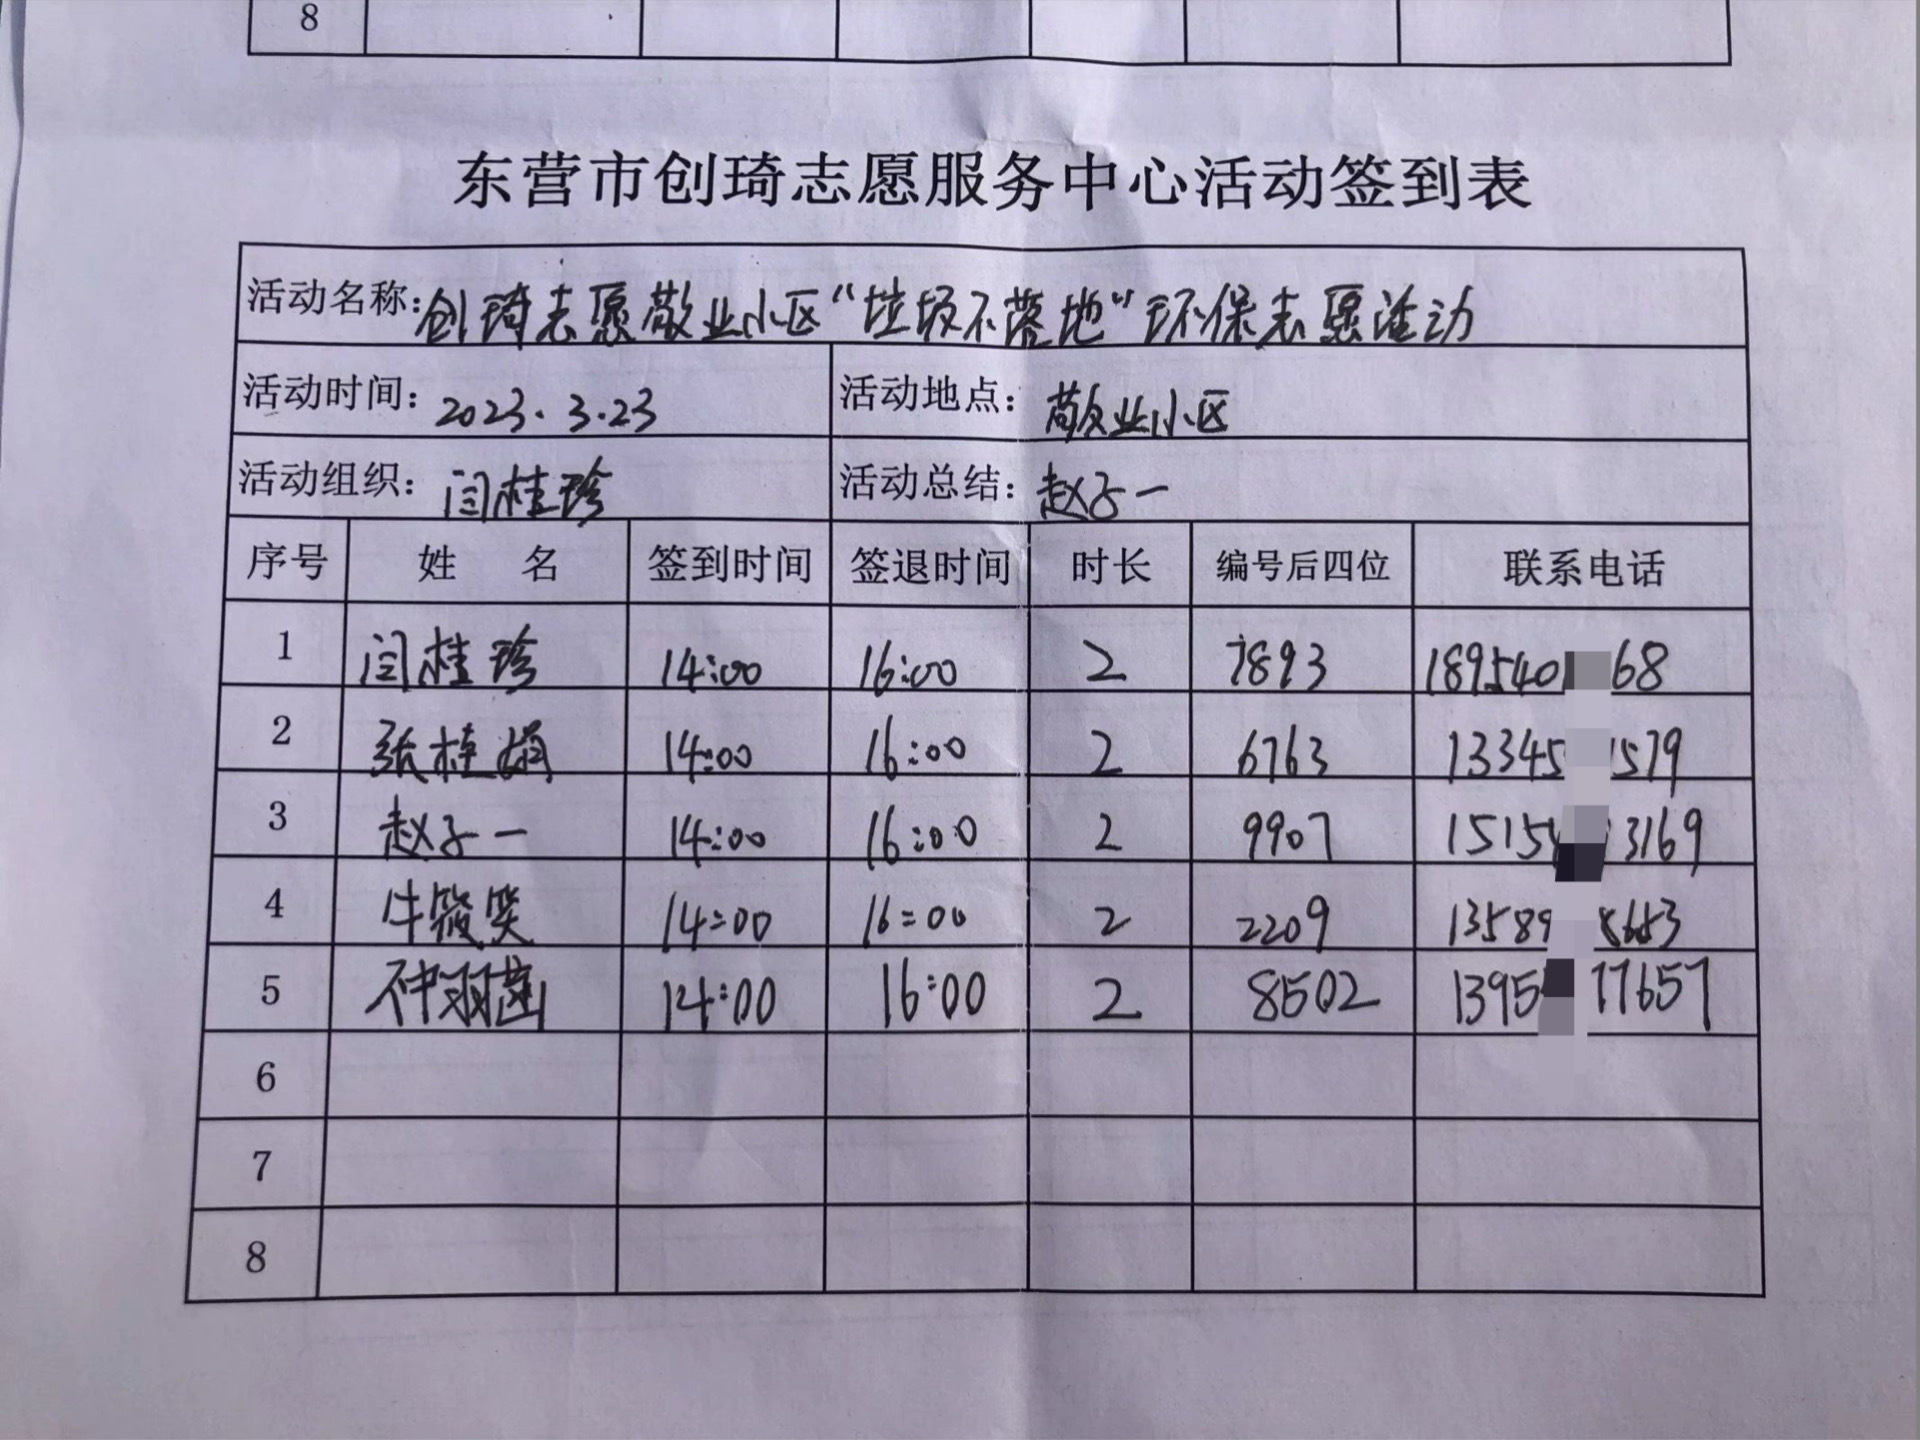 8
东营市创琦志愿服务中心活动签到表
活动名称：创琦志愿敬业小区“垃圾不落地”环保志愿活动
活动时间：2023.3.23 活动地点：敬业小区
活动组织：闫桂珍 活动总结：赵子一
序号 姓 名 签到时间 签退时间 时长 编号后四位 联系电话
1 闫桂珍 14:00 16:00 2 7893 189540 68
2 张桂娟 14:00 16:00 2 6763 13345 1579
3 赵子一 14:00 16:00 2 9907 15154 3169
4 牛筱笑 14:00 16:00 2 2209 13589 8653
5 14:00 16:00 2 8502 1395 77657
6
7
8